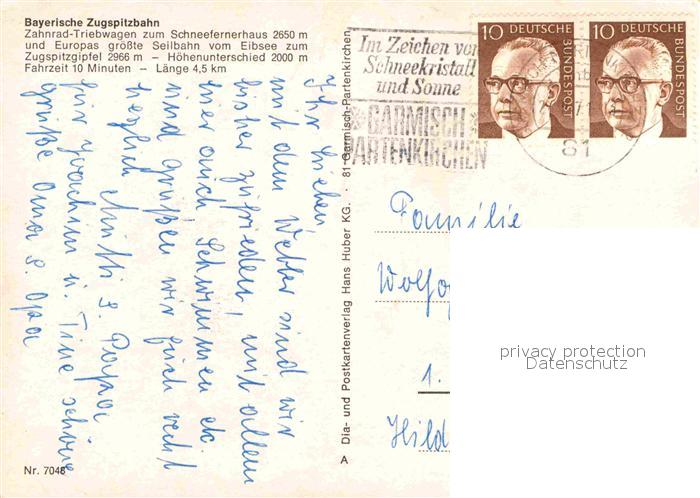 Bayerische Zugspitzbahn
Zahnrad-Triebwagen zum Schneefernerhaus 2650 m
und Europas größte Seilbahn vom Eibsee zum
Zugspitzgipfel 2966 m – Höhenunterschied 2000 m
Fahrzeit 10 Minuten – Länge 4,5 km
Ihr Lieben
mit dem Wetter sind wir
bisher zufrieden, mit allem
hier auch Schwimmen etc
und grüßen wir Euch recht
herzlich Mutti & Papa
für Joachim u. Tine schöne
Grüße Oma & Opa
Nr. 7048
Dia- und Postkartenverlag Hans Huber KG. · 81 Garmisch-Partenkirchen
A
Im Zeichen von
Schneekristall
und Sonne
GARMISCH
PARTENKIRCHEN
81
10 DEUTSCHE
BUNDESPOST
10 DEUTSCHE
BUNDESPOST
Familie
Wolfg
1.
Hild
privacy protection
Datenschutz